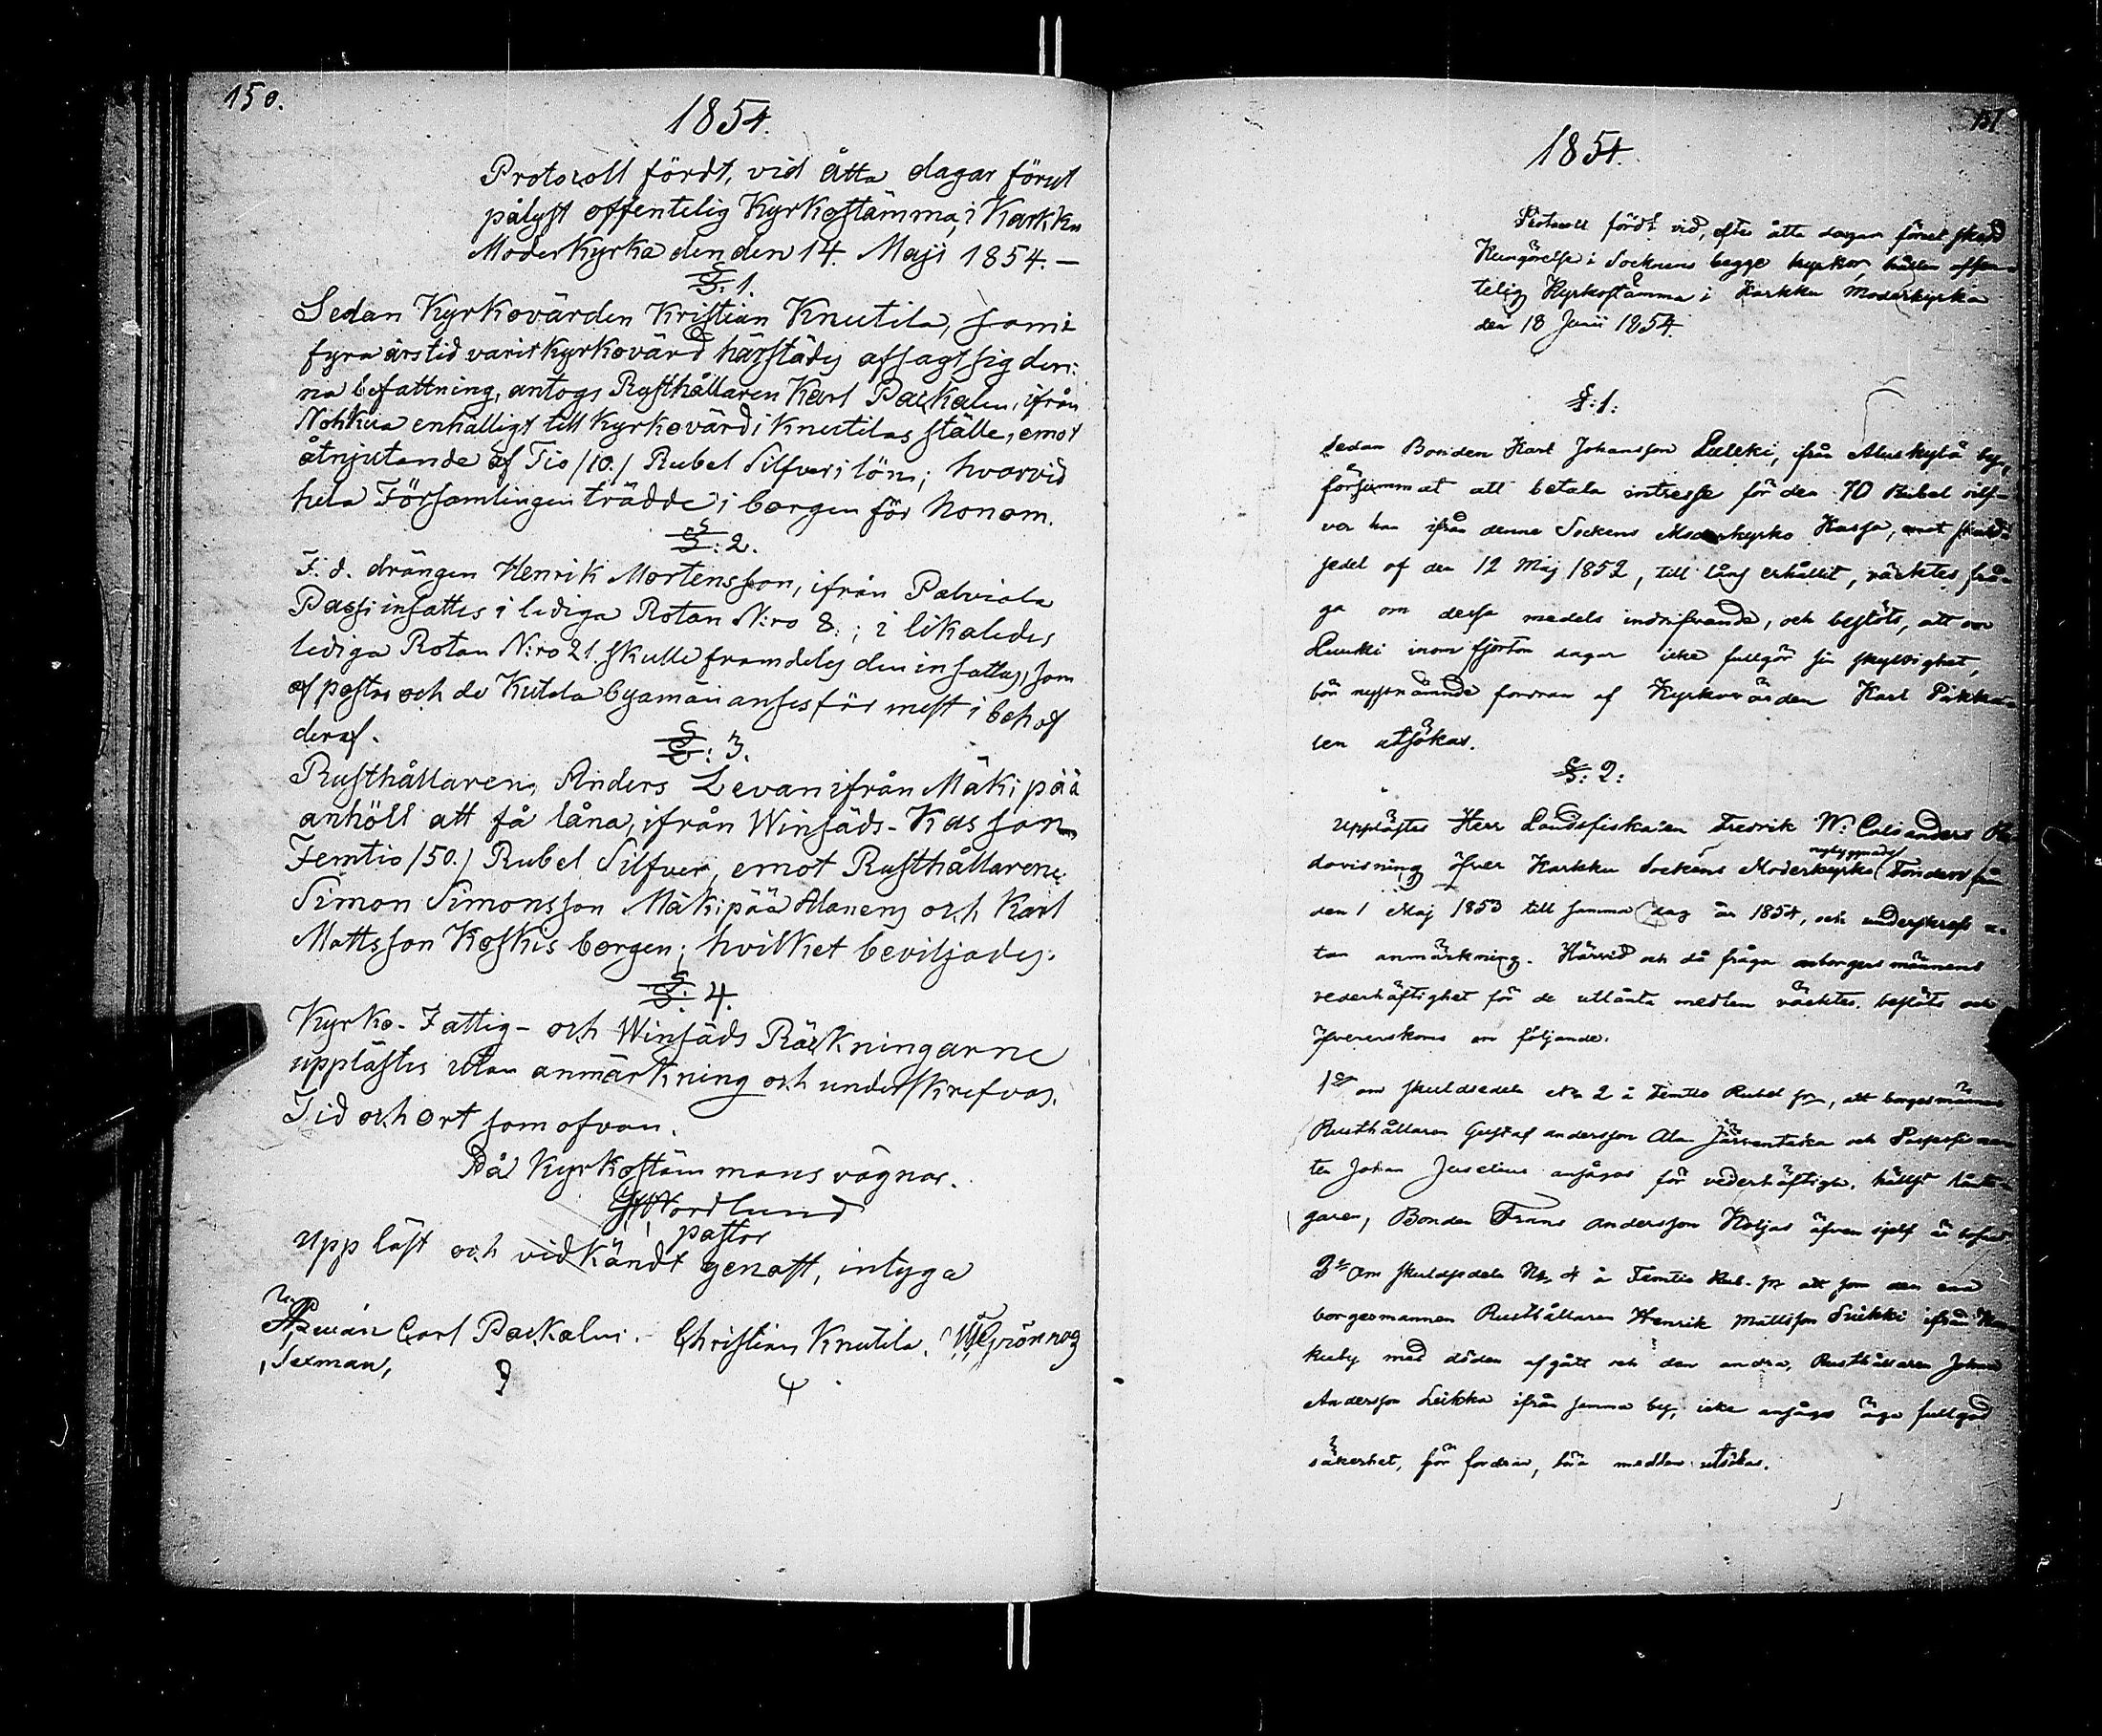 150.
1854.
Protocoll fördt, vid åtta dagar förut
pålyst offentelig Kyrkostämma, i Karkku
Moderkyrka den den 14. Maji 1854. —
§. 1.
Sedan Kyrkovärden Kristian Knutila, som i
fyra års tid varit kyrkovärd härstädes afsagt sig den:
na befattning, antogs Rusthållaren Karl Packalen, ifrån
Nohkua enhälligt till Kyrkovärd i Knutilas ställe, emot
åtnjutande af Tio /10./ Rubel Silfver i lön; hvarvid
hela Församlingen trädde i borgen för honom.
§: 2.
F. d. drängen Henrik Mortensson, ifrån Palviala
Passi insattes i lediga Rotan N:ro 8.; i likaledes
lediga Rotan N:ro 21. skulle framdeles den insattas, som
af pastor och de Kutala byamän anses för mest i behof
deraf.
§: 3.
Rusthållaren, Anders Levan ifrån Mäkipää
anhöll att få låna, ifrån Winsäds-Kassan
Femtio /50./ Rubel Silfver, emot Rusthållarene
Simon Simonsson Mäkipää Alanens och Karl
Mattsson Koskis borgen; hvilket beviljades.
§: 4.
Kyrko- Fattig- och Winsäds Räkningarne
upplästes utan anmärkning och underskrefvos.
Tid och ort som ofvan.
På Kyrkostämmans vägnar.
Nordlund
pastor
Upp läst och vidkändt genast, intyga
Carl Packalen. Christian Knutila. Grönroos
Sexman,
151
1854.
Protocoll fördt vid, efter åtta dagar förut skedd
Kungörelse i Socknens begge kyrkor, hållen offen-
telig Kyrkostämma i Karkku Moderkyrka
den 18 Junii 1854.
§: 1:
Sedan Bonden Karl Johansson Luukki, ifrån Aluskylä by,
försummat att betala intresse för den 70 Rubel silf-
ver han ifrån denne Sockens Moderkyrko Kassa, mot skuld-
sedel af den 12 Maj 1852, till låns erhållit, väcktes frå-
ga om dessa medels indrifvande, och beslöts, att om
Luukki inom fjorton dagar icke fullgör sin skyldighet,
bör nyssnämnde fordran af Kyrkovärden Karl Pakka-
len utsökas.
§: 2:
Upplästes Herr Landsfiskalen Fredrik W. Calianders Re-
dovisning öfver Karkku Sockens Moderkyrko nybyggnads Fonden från
den 1 Maj 1853 till samma dag år 1854, och underskrefs u-
tan anmärkning. Härvid och då fråga om borgesmännens
vederhäftighet för de utlånta medlen väcktes, beslöts och
öfverenskoms om följande.
1o om skuldsedeln No 2 å Femtio Rubel sr, att borgesmännen
Rusthållaren Gustaf Andersson Ala Järventaka och
Johan Juselius ansågos för vederhäftige, hälst lånta-
garen, Bonden Frans Andersson Koljas äfven sjelf är
2o Om skuldsedeln No 4 å Femtio Rub. sr att som den ena
borgesmannen Rusthållaren Henrik Mattsson Siukki ifrån
by med döden afgått och den andra, Rusthållaren Johan
Andersson Liukka ifrån samma by, icke ansågs äga fullgod
säkerhet, för fordran, böra medlen utsökas.